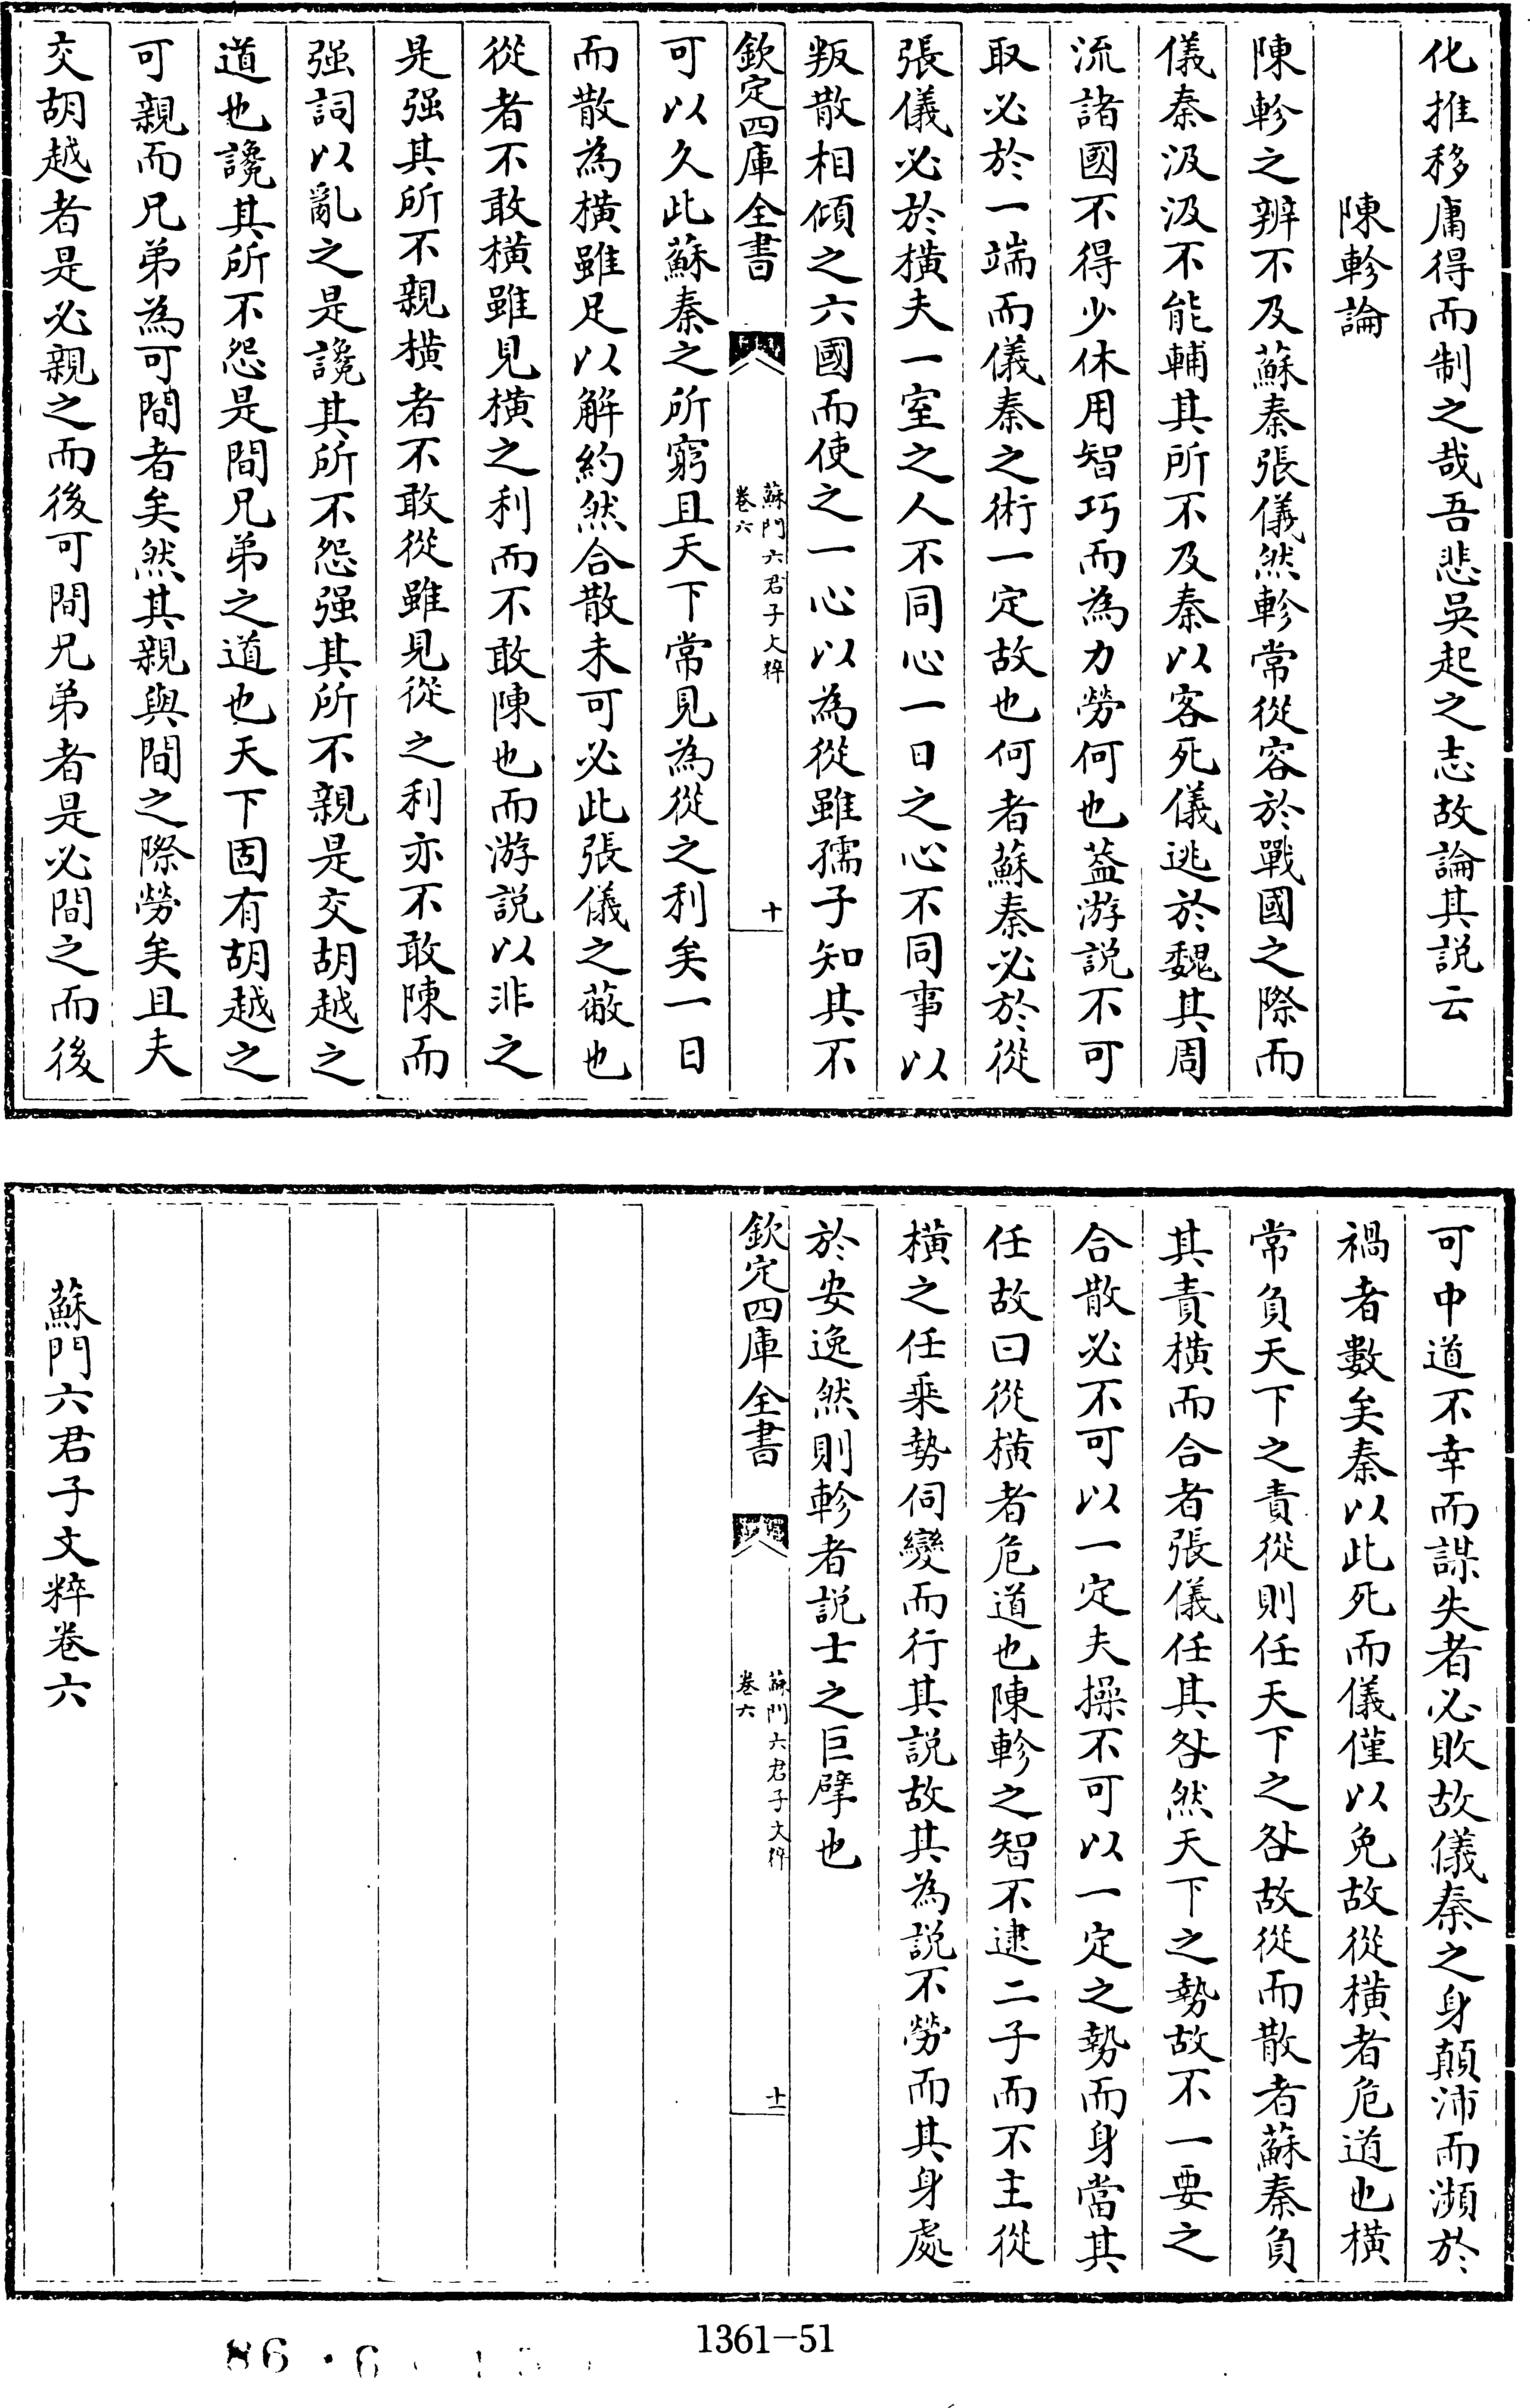 化推移庸得而制之哉吾悲吳起之志故論其説云
陳軫論
陳軫之辨不及蘇秦張儀然軫常從容於戰國之際而
儀秦汲汲不能輔其所不及秦以客死儀逃於魏其周
流諸國不得少休用智巧而為力勞何也葢游説不可
取必於一端而儀秦之術一定故也何者蘇秦必於從
張儀必於橫夫一室之人不同心一日之心不同事以
叛散相傾之六國而使之一心以為從雖孺子知其不
欽定四庫全書
蘇門六君子文粹
卷六
十
可以久此蘇秦之所窮且天下常見為從之利矣一日
而散為橫雖足以解約然合散未可必此張儀之蔽也
從者不敢橫雖見橫之利而不敢陳也而游説以非之
是强其所不親橫者不敢從雖見從之利亦不敢陳而
强詞以亂之是讒其所不怨强其所不親是交胡越之
道也讒其所不怨是間兄弟之道也天下固有胡越之
可親而兄弟為可間者矣然其親與間之際勞矣且夫
交胡越者是必親之而後可間兄弟者是必間之而後
可中道不幸而謀失者必敗故儀秦之身顛沛而瀕於
禍者數矣秦以此死而儀僅以免故從橫者危道也橫
常負天下之責從則任天下之咎故從而散者蘇秦負
其責橫而合者張儀任其咎然天下之勢故不一要之
合散必不可以一定夫操不可以一定之勢而身當其
任故曰從橫者危道也陳軫之智不逮二子而不主從
橫之任乘勢伺變而行其説故其為説不勞而其身處
於安逸然則軫者説士之巨擘也
欽定四庫全書
蘇門六君子文粹
卷六
十一
蘇門六君子文粹卷六
1361-51